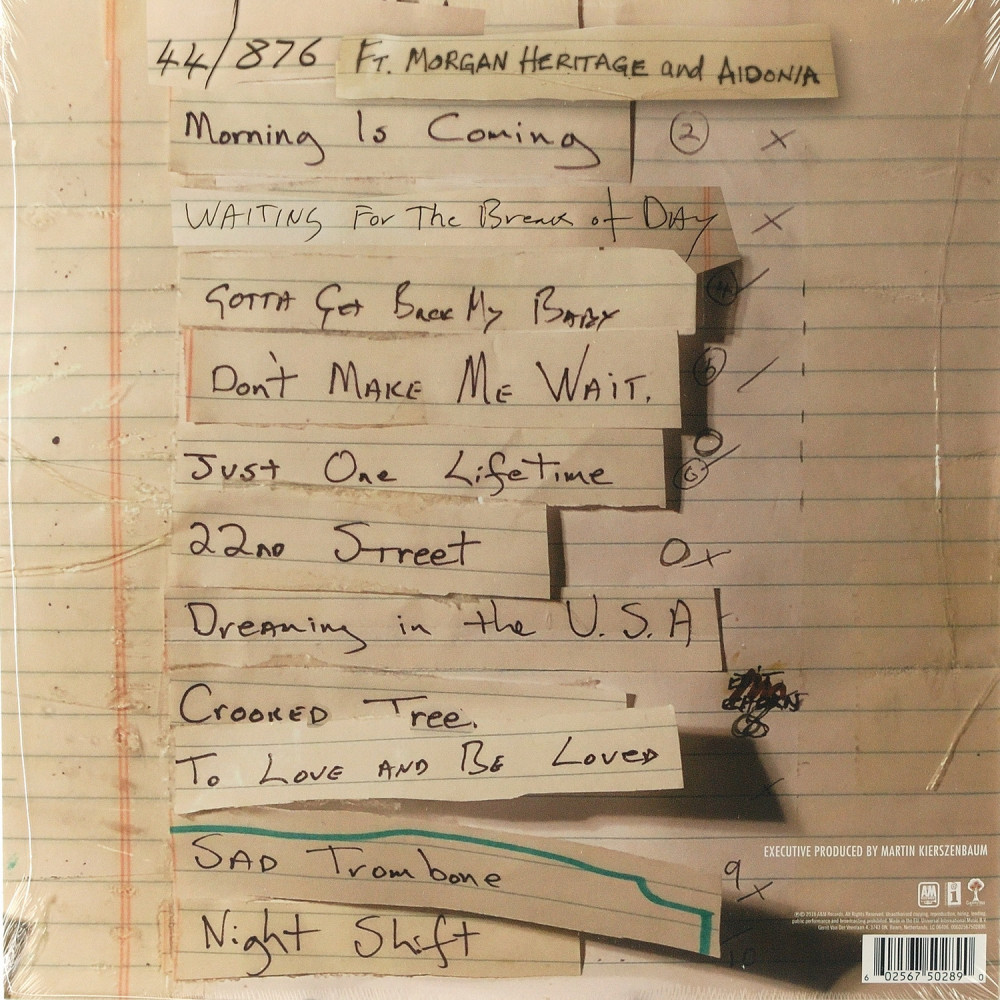 44/876 FT. MORGAN HERITAGE and AIDONIA
Morning Is Coming 2 x
WAITING For The Break of DAY x
GOTTA Get Back My BABY 4
Don't MAKE ME WAIT. 5
Just One Lifetime 6
22ND Street 0x
Dreaming in the U.S.A
CROOKED Tree.
To LOVE AND BE LOVED
SAD Trombone 9 x
Night Shift 10
EXECUTIVE PRODUCED BY MARTIN KIERSZENBAUM
A&M i
6 02567 50289 0